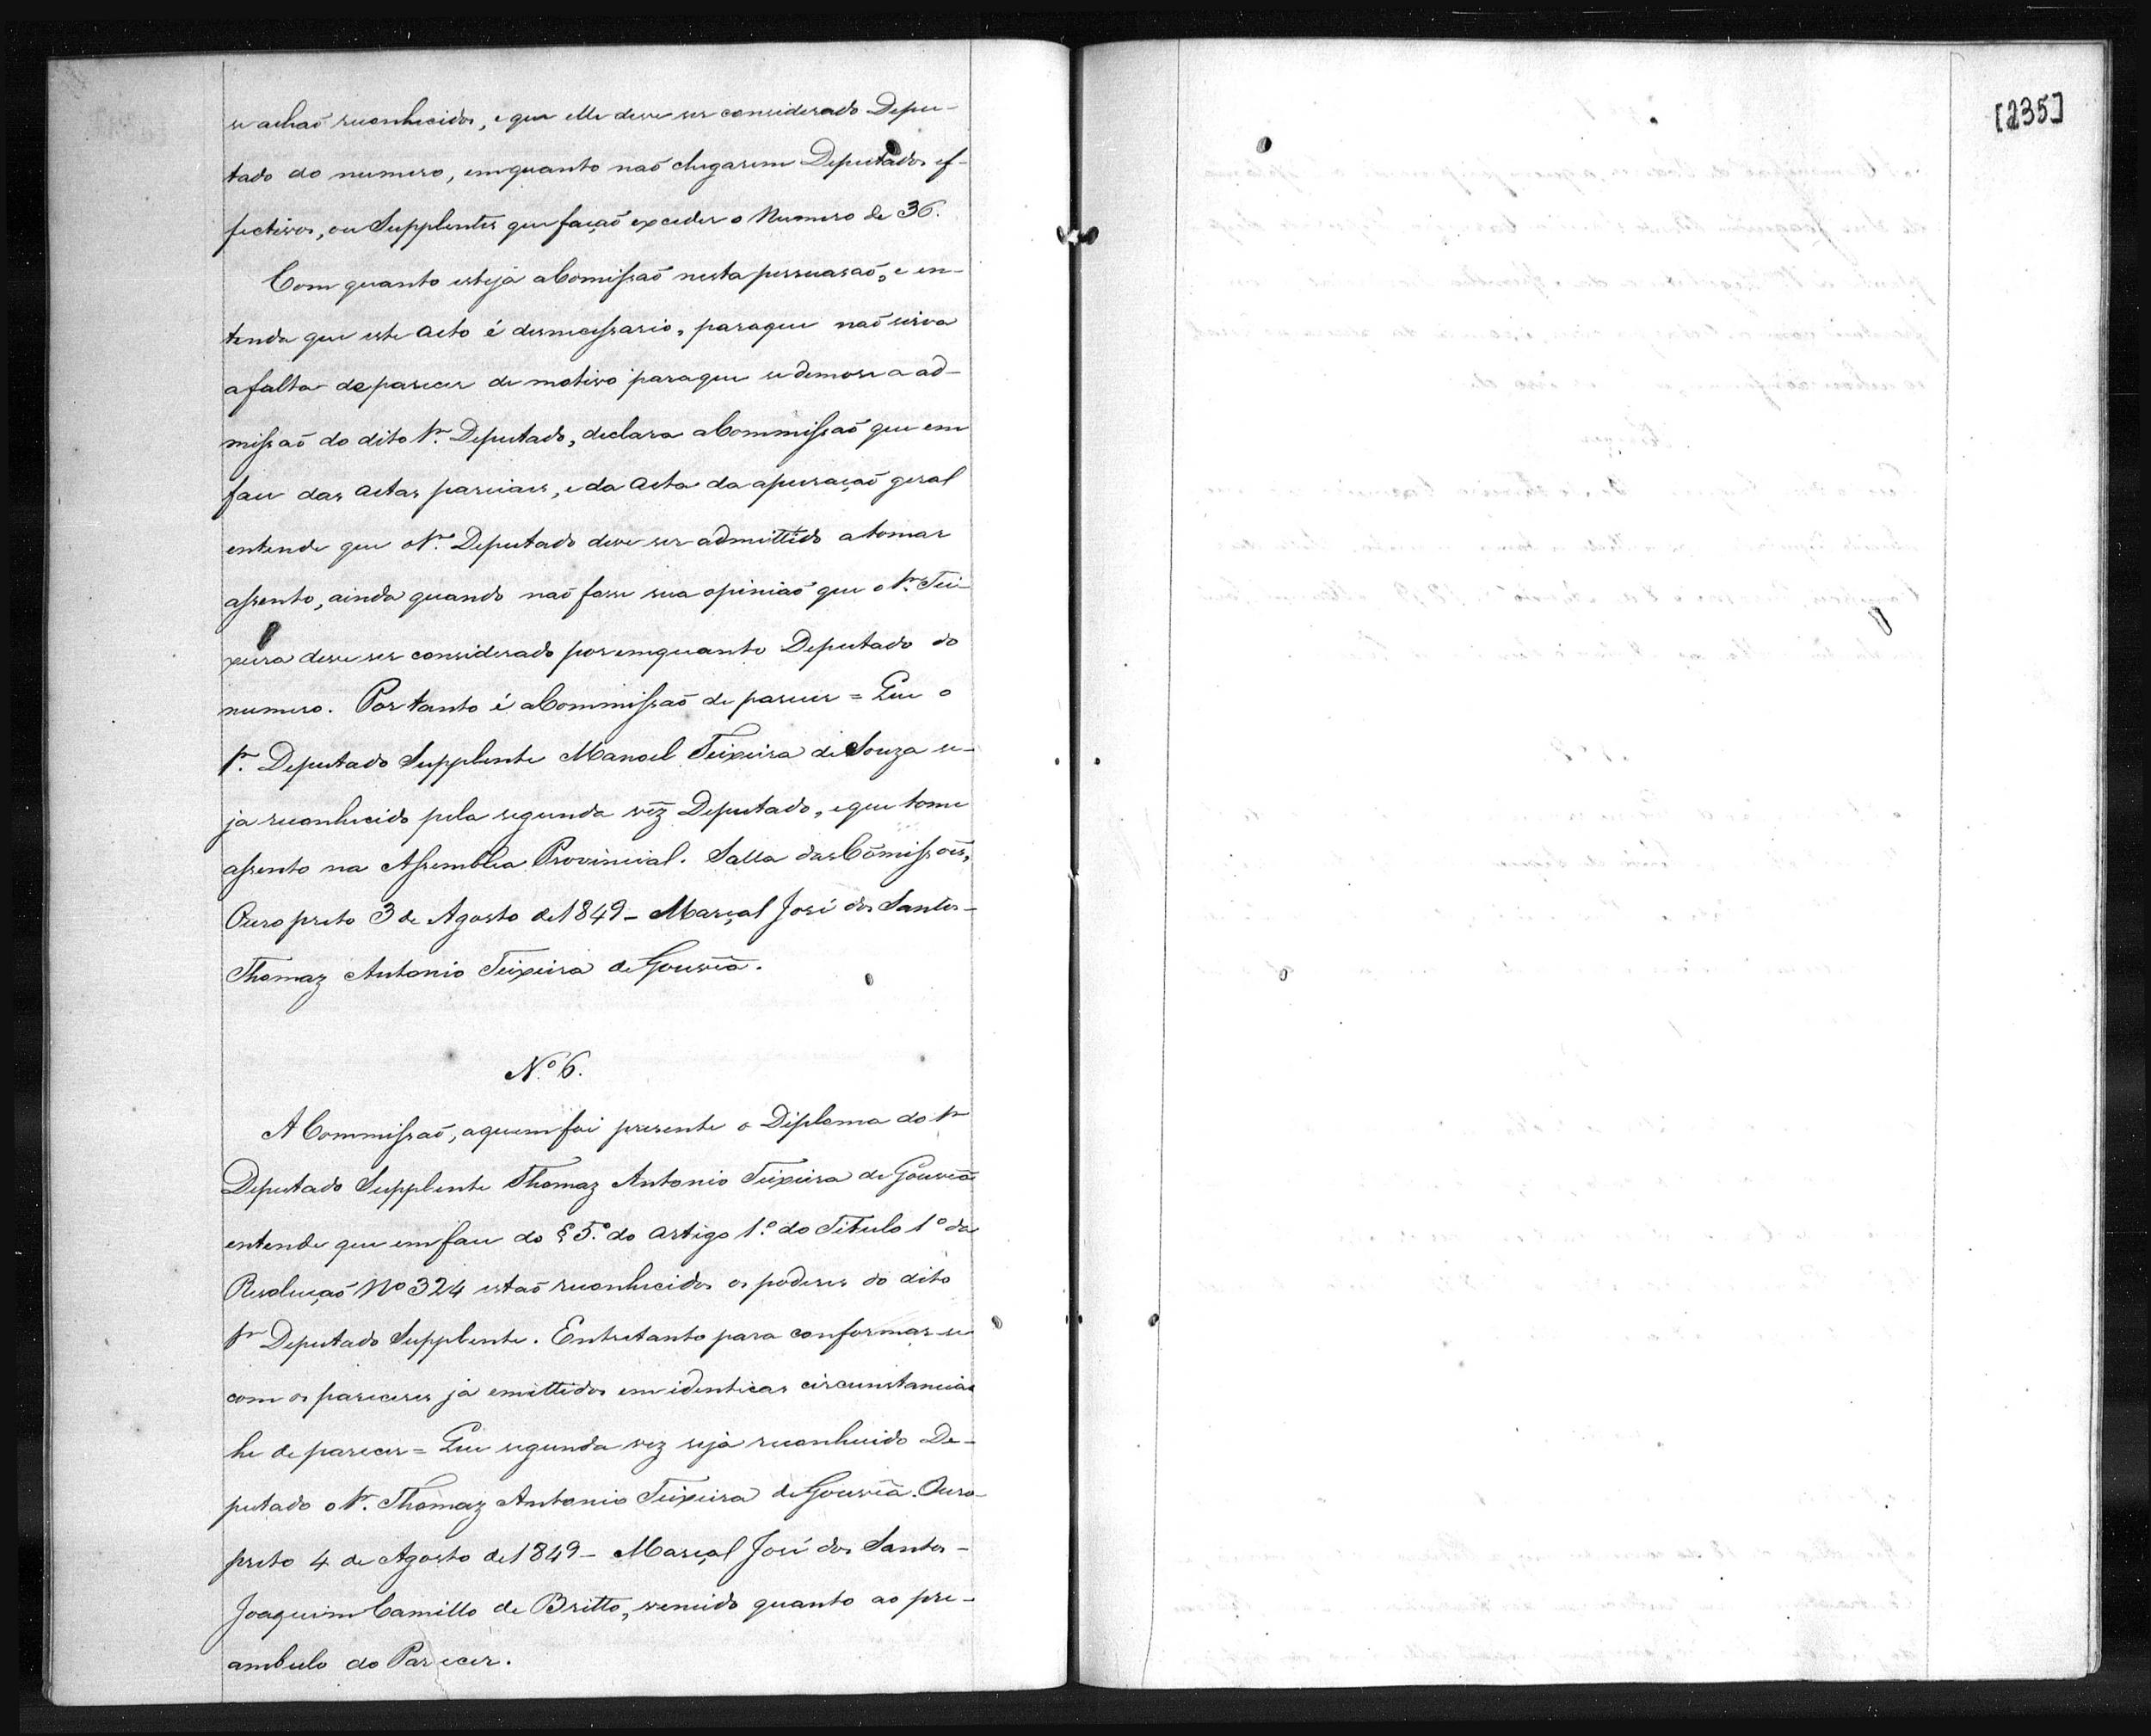 se achaõ reconhecidos, e que elle deve ser considerado Depu-
tado do numero, emquanto naõ chegarem Deputados ef-
fectivos, ou Supplentes que façaõ exceder o Numero de 36.
Com quanto esteja a Comissaõ nesta persuasaõ, e en-
tenda que este acto é desnecessario, paraque naõ sirva
a falta de parecer de motivo paraque se demore a ad-
missaõ do dito Sr. Deputado, declara a Commissaõ que em
face das actas parciaes, e da acta da apuraçaõ geral
entende que o Sr. Deputado deve ser admittido a tomar
assento, ainda quando naõ fosse sua opiniaõ que o Sr. Tei-
xeira deve ser considerado por emquanto Deputado do
numero. Por tanto é a Commissaõ de parecer = Que o
Sr. Deputado Supplente Manoel Teixeira de Souza se-
ja reconhecido pela segunda vez Deputado, e que tome
assento na Assemblea Provincial. Salla das Cõmissões,
Ouro preto 3 de Agosto de 1849 - Marçal José dos Santos -
Thomaz Antonio Teixeira de Gouvêa.
N.º 6.
A Commissaõ, a quem foi presente o Diploma do Sr
Deputado Supplente Thomaz Antonio Teixeira de Gouvêa
entende que em face do § 5.º do artigo 1.º do Titulo 1º da
Resoluçaõ Nº 324 estaõ reconhecidos os poderes do dito
Sr Deputado Supplente. Entretanto para conformar-se
com os pareceres já emittidos em identicas circumstancias
he de parecer = Que segunda vez seja reconhecido De-
putado o Sr. Thomaz Antonio Teixeira de Gouvêa. Ouro-
preto 4 de Agosto de 1849 - Marçal José dos Santos -
Joaquim Camillo de Britto, vencido quanto ao pre-
ambulo do Parecer.
[235]